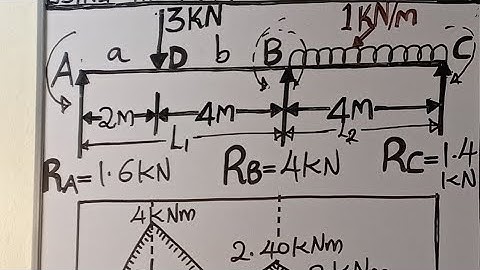 3KN
1KN/m
A a D b B C
2M 4M 4M
L1 L2
RA=1.6KN RB=4KN RC=1.4
KN
4KNm
2.40KNm